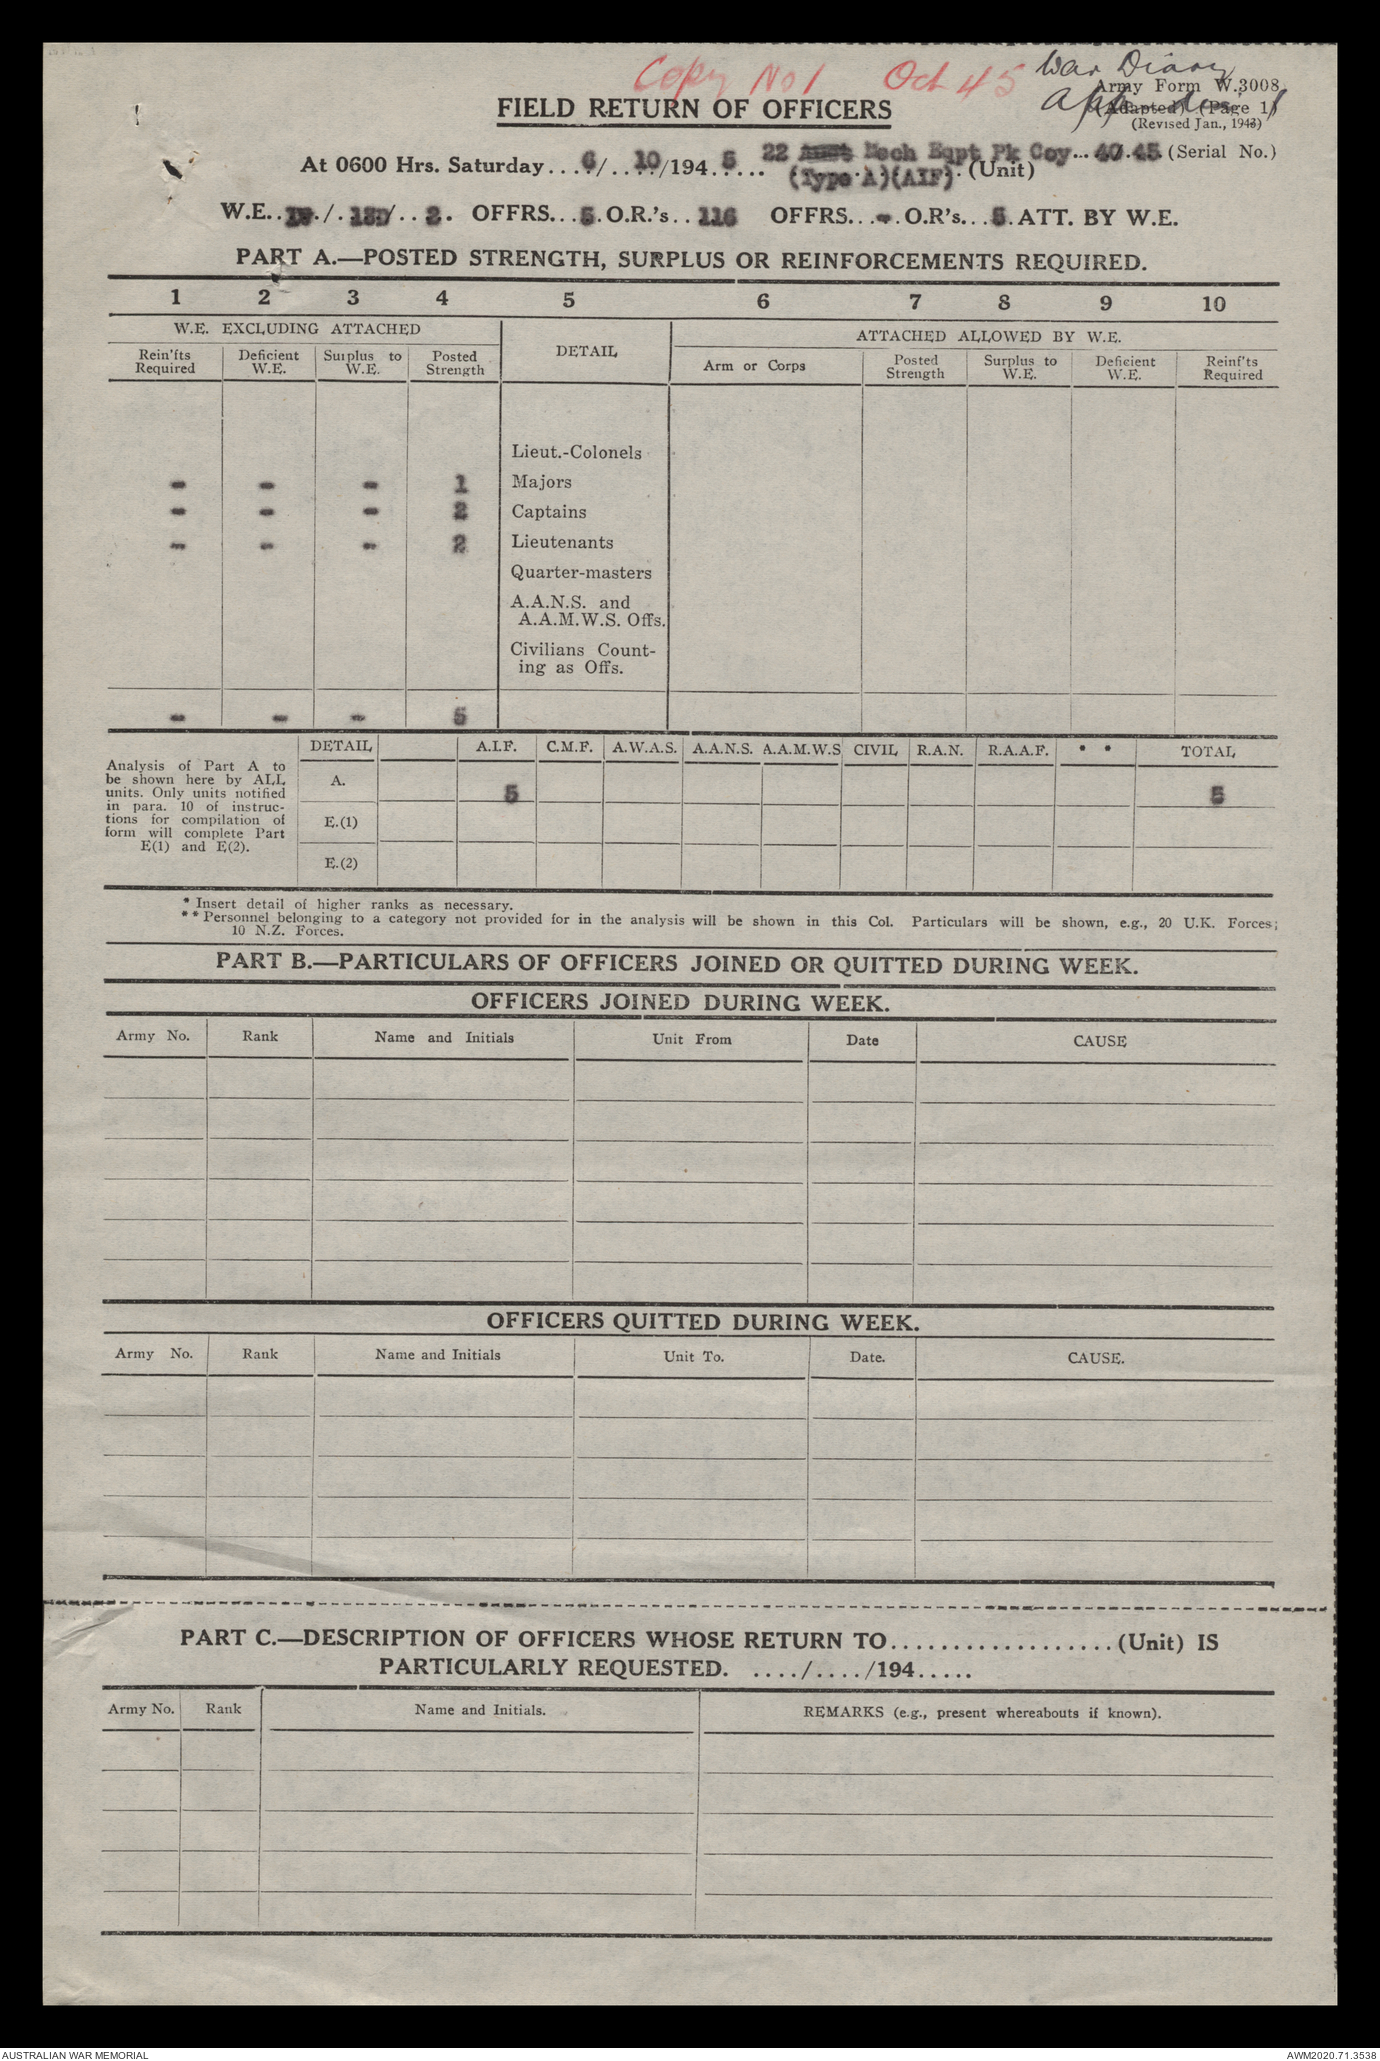 Copy No 1 Oct 45 War Diary
Army Form W.3008
FIELD RETURN OF OFFICERS
(Adapted) (Page 1)
(Revised Jan., 1943)
At 0600 Hrs. Saturday....6/..10/194.5.... 22 Mech Eqpt Pk Coy...40.45 (Serial No.)
(Type A)(AIF). (Unit)
W.E. .../.../..2. OFFRS...5.O.R.'s..116 OFFRS...-.O.R's...5.ATT. BY W.E.
PART A.—POSTED STRENGTH, SURPLUS OR REINFORCEMENTS REQUIRED.
1 2 3 4 5 6 7 8 9 10
W.E. EXCLUDING ATTACHED DETAIL ATTACHED ALLOWED BY W.E.
Rein'fts Required Deficient W.E. Surplus to W.E. Posted Strength Arm or Corps Posted Strength Surplus to W.E. Deficient W.E. Reinf'ts Required
Lieut.-Colonels
- - - 1 Majors
- - - 2 Captains
- - - 2 Lieutenants
Quarter-masters
A.A.N.S. and
A.A.M.W.S. Offs.
Civilians Count-
ing as Offs.
- - - 5
DETAIL A.I.F. C.M.F. A.W.A.S. A.A.N.S. A.A.M.W.S CIVIL R.A.N. R.A.A.F. * * TOTAL
Analysis of Part A to
be shown here by ALL
units. Only units notified
in para. 10 of instruc-
tions for compilation of
form will complete Part
E(1) and E(2).
A. 5 5
E.(1)
E.(2)
* Insert detail of higher ranks as necessary.
** Personnel belonging to a category not provided for in the analysis will be shown in this Col. Particulars will be shown, e.g., 20 U.K. Forces;
10 N.Z. Forces.
PART B.—PARTICULARS OF OFFICERS JOINED OR QUITTED DURING WEEK.
OFFICERS JOINED DURING WEEK.
Army No. Rank Name and Initials Unit From Date CAUSE
OFFICERS QUITTED DURING WEEK.
Army No. Rank Name and Initials Unit To. Date. CAUSE.
PART C.—DESCRIPTION OF OFFICERS WHOSE RETURN TO..................(Unit) IS
PARTICULARLY REQUESTED. ..../..../194.....
Army No. Rank Name and Initials. REMARKS (e.g., present whereabouts if known).
AUSTRALIAN WAR MEMORIAL AWM2020.71.3538